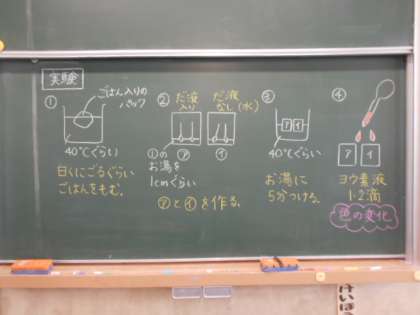 実験
①
ごはん入りの
パック
40℃ぐらい
白くにごるぐらい
ごはんをもむ。
②
だ液
入り
だ液
なし(水)
①の
お湯を
1cmぐらい
ア
イ
アとイを作る。
③
ア イ
40℃ぐらい
お湯に
5分つける。
④
ア イ
ヨウ素液
1・2滴
色の変化
けいぼう